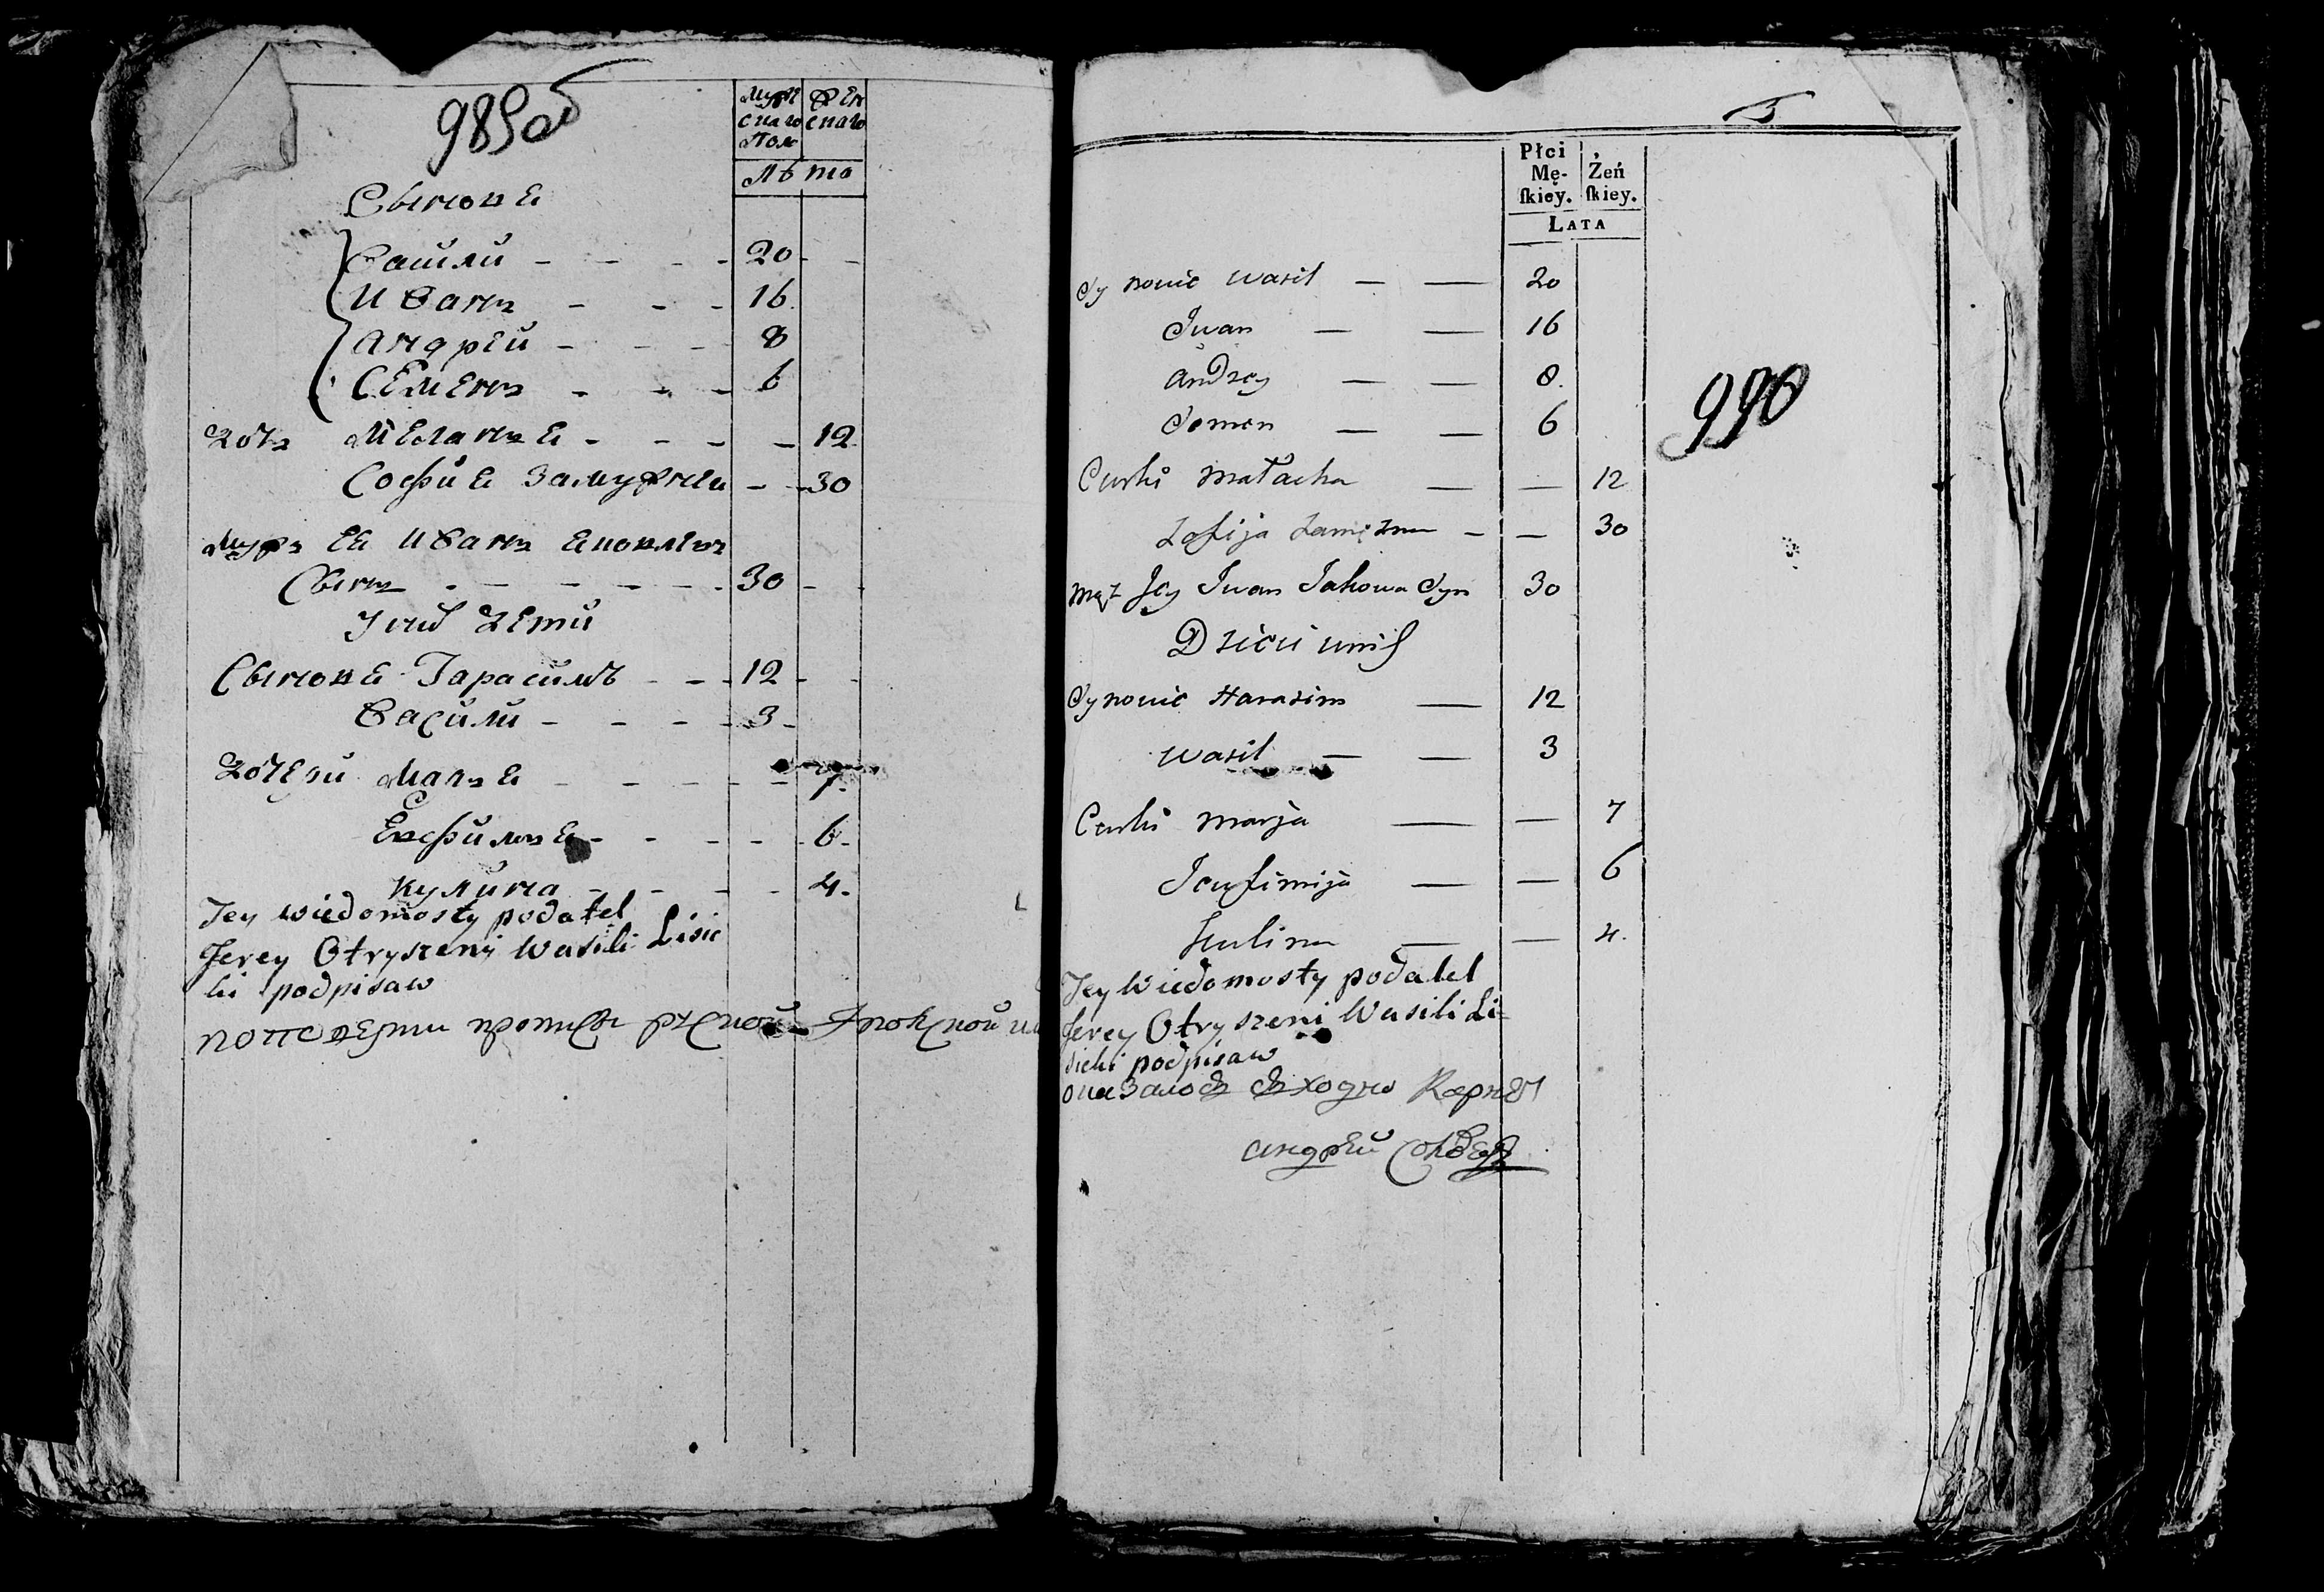 989об
Мужескаго Полу
Женскаго
Лѣта
Сыновья
Василий 20
Иванъ 16
Андрей 8
Семенъ 6
Дочь Меланья 12
София Замужняя 30
Мужъ ея Иванъ Яковлевъ
Сынъ 30
У них Дети
Сыновья Гарасимъ 12
Василий 3
Дочери Марья 7
Евфимья 6
Кулина 4
Jey wiedomosty podatel
Jerey Otryszeni Wasili Lisic
ki podpisaw
5
Płci Mę-ſkiey.
Żeń ſkiey.
LATA
Synowie Wasil 20
Iwan 16
Andrey 8
Semen 6
990
Curki Małacha 12
Zofija Zamężna 30
Mąż Jey Iwan Jakowa Syn 30
Dzieci unich
Synowie Harasim 12
Wasil 3
Curki Marja 7
Jeufimija 6
Kulina 4
Jey Wiedomosty podatel
Jerey Otryszeni Wasili Li-
sicki podpisaw
Андрей